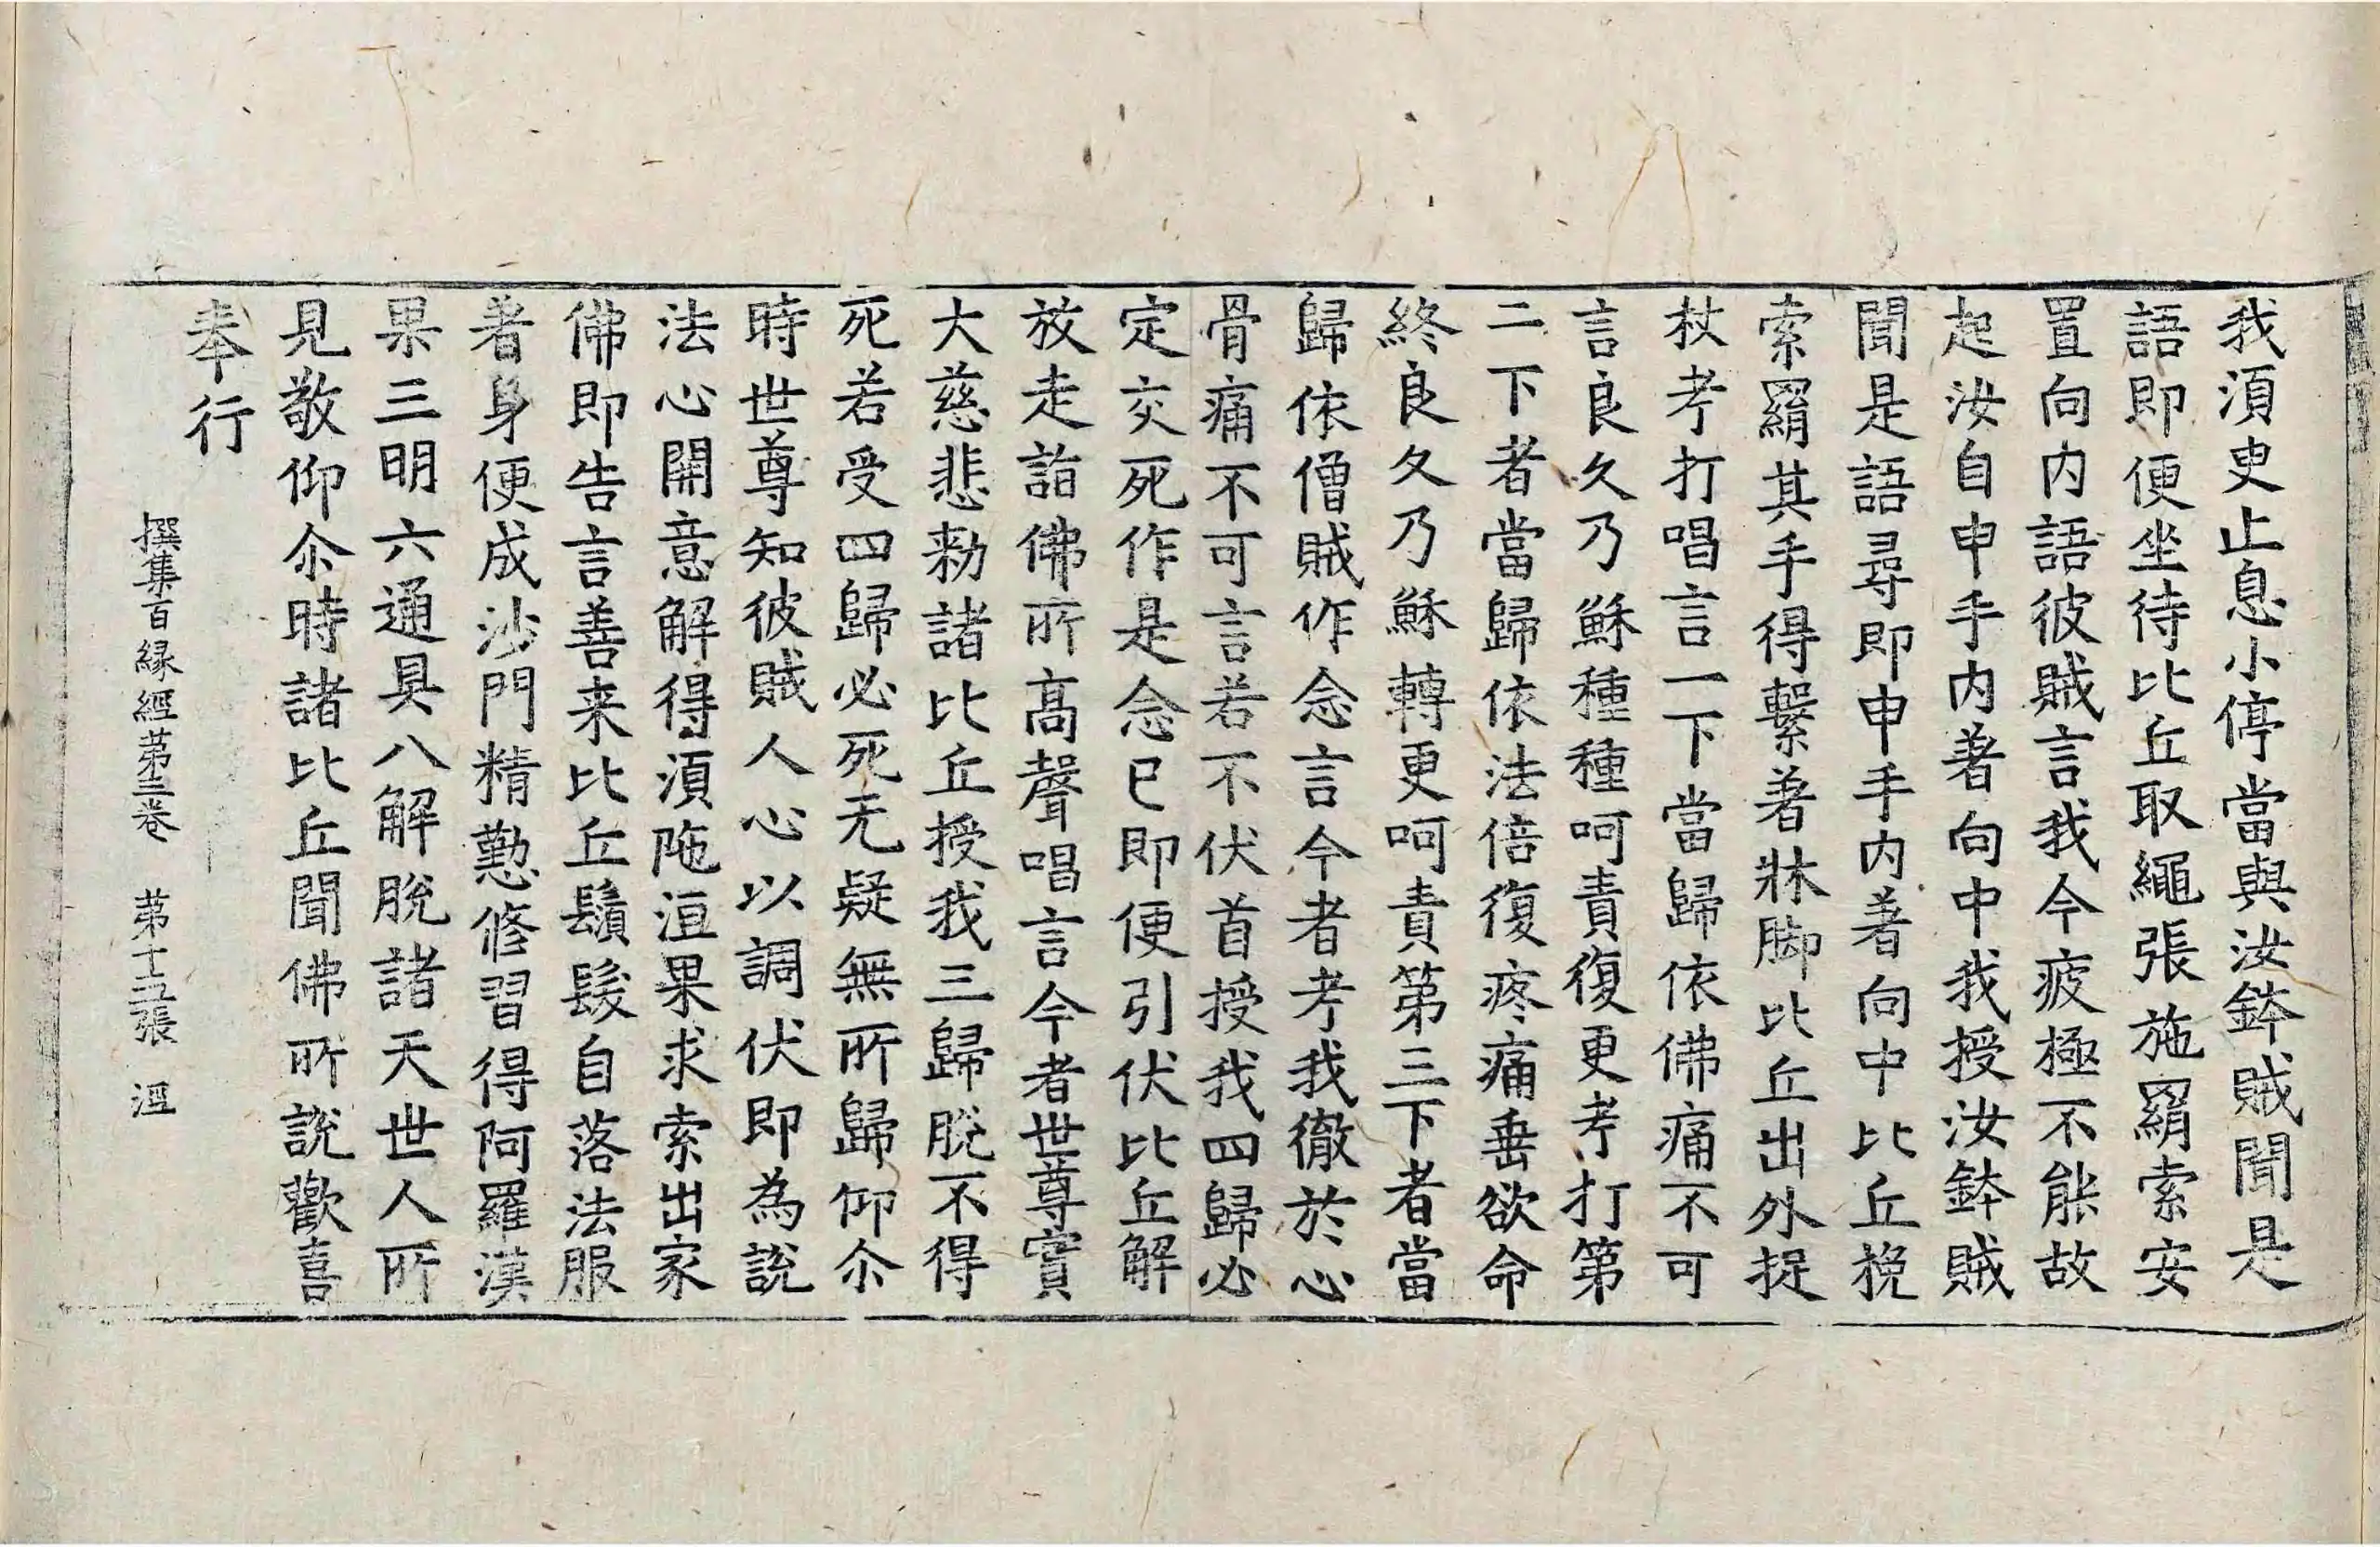 我湏臾止息小停當與汝鉢賊聞是
語即便坐待比丘取繩張施羂索安
置向内語彼賊言我今疲極不能故
起汝自申手内著向中我授汝鉢賊
聞是語尋即申手内著向中比丘挽
索羂其手得繫著牀脚比丘出外捉
杖考打唱言一下當歸依佛痛不可
言良久乃穌種種呵責復更考打第
二下者當歸依法倍復疼痛垂欲命
終良久乃穌轉更呵責第三下者當
歸依僧賊作念言今者考我徹於心
骨痛不可言若不伏首授我四歸必
定交死作是念已即便引伏比丘解
放走詣佛所高聲唱言今者世尊實
大慈悲勑諸比丘授我三歸脫不得
死若受四歸必死无疑無所歸仰尒
時世尊知彼賊人心以調伏即為說
法心開意解得湏陁洹果求索出家
佛即告言善来比丘鬚髮自落法服
著身便成沙門精懃修習得阿羅漢
果三明六通具八解脫諸天世人所
見敬仰尒時諸比丘聞佛所說歡喜
奉行
撰集百緣經第三卷 第十五張 洹